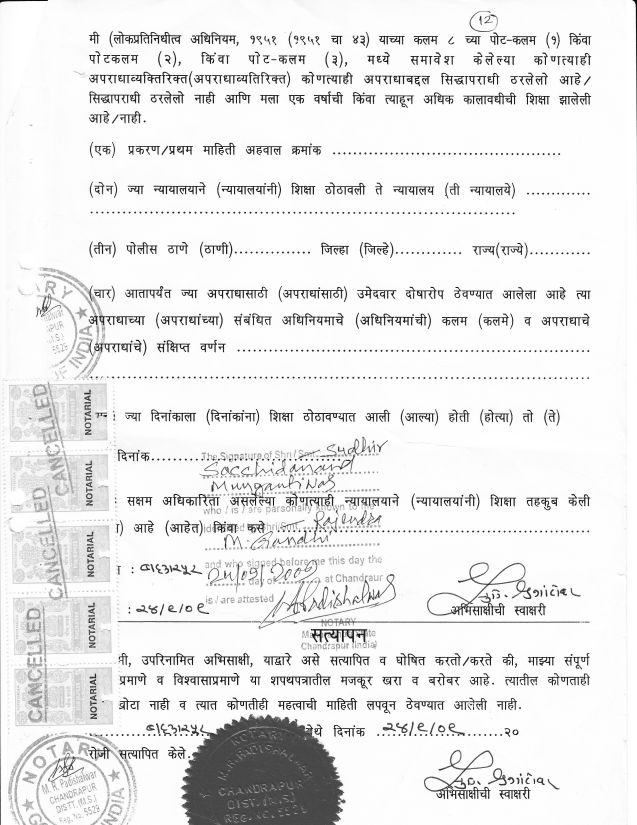 12
मी (लोकप्रतिनिधीत्व अधिनियम, १९५१ (१९५१ चा ४३) याच्या कलम ८ च्या पोट-कलम (१) किंवा
पोटकलम (२), किंवा पोट-कलम (३), मध्ये समावेश केलेल्या कोणत्याही
अपराधाव्यक्तिरिक्त(अपराधाव्यतिरिक्त) कोणत्याही अपराधाबद्दल सिद्धापराधी ठरलेलो आहे/
सिद्धापराधी ठरलेलो नाही आणि मला एक वर्षाची किंवा त्याहून अधिक कालावधीची शिक्षा झालेली
आहे/नाही.
(एक) प्रकरण/प्रथम माहिती अहवाल क्रमांक ..........................................
(दोन) ज्या न्यायालयाने (न्यायालयांनी) शिक्षा ठोठावली ते न्यायालय (ती न्यायालये) ............
..............................................................................
(तीन) पोलीस ठाणे (ठाणी).............. जिल्हा (जिल्हे)............ राज्य(राज्ये)...........
(चार) आतापर्यंत ज्या अपराधासाठी (अपराधांसाठी) उमेदवार दोषारोप ठेवण्यात आलेला आहे त्या
अपराधाच्या (अपराधांच्या) संबंधित अधिनियमाचे (अधिनियमांची) कलम (कलमे) व अपराधाचे
(अपराधांचे) संक्षिप्त वर्णन ................................................................
..........................................................................................
ज्या दिनांकाला (दिनांकांना) शिक्षा ठोठावण्यात आली (आल्या) होती (होत्या) तो (ते)
दिनांक..........
The Signature of Shri/Smt. Sudhir
Sacchidanand
Mungantiwar
who / is / are personally known to the
सक्षम अधिकारिता असलेल्या कोणत्याही न्यायालयाने (न्यायालयांनी) शिक्षा तहकुब केली
आहे (आहेत) किंवा कसे ..........
Shri/Smt. Rajendra
M. Gandhi
and who signed before me this day the
24/09/2009
day of at Chandraur
is / are attested
: चंद्रपूर
: २४/९/०९
अभिसाक्षीची स्वाक्षरी
NOTARY
Chandrapur (India)
सत्यापन
मी, उपरिनामित अभिसाक्षी, याद्वारे असे सत्यापित व घोषित करतो/करते की, माझ्या संपूर्ण
प्रमाणे व विश्वासाप्रमाणे या शपथपत्रातील मजकूर खरा व बरोबर आहे. त्यातील कोणताही
खोटा नाही व त्यात कोणतीही महत्वाची माहिती लपवून ठेवण्यात आलेली नाही.
चंद्रपूर येथे दिनांक २४/९/०९ २०
रोजी सत्यापित केले.
अभिसाक्षीची स्वाक्षरी
CANCELLED
CANCELLED
CANCELLED
NOTARIAL
NOTARIAL
NOTARIAL
NOTARIAL
NOTARIAL
NOTARY
M. R. Padishalwar
CHANDRAPUR
DISTT. (M.S.)
Reg. No. 5529
NOTARY
M.R. PADISHALWAR
CHANDRAPUR
DIST. (M.S.)
REG. NO. 5529